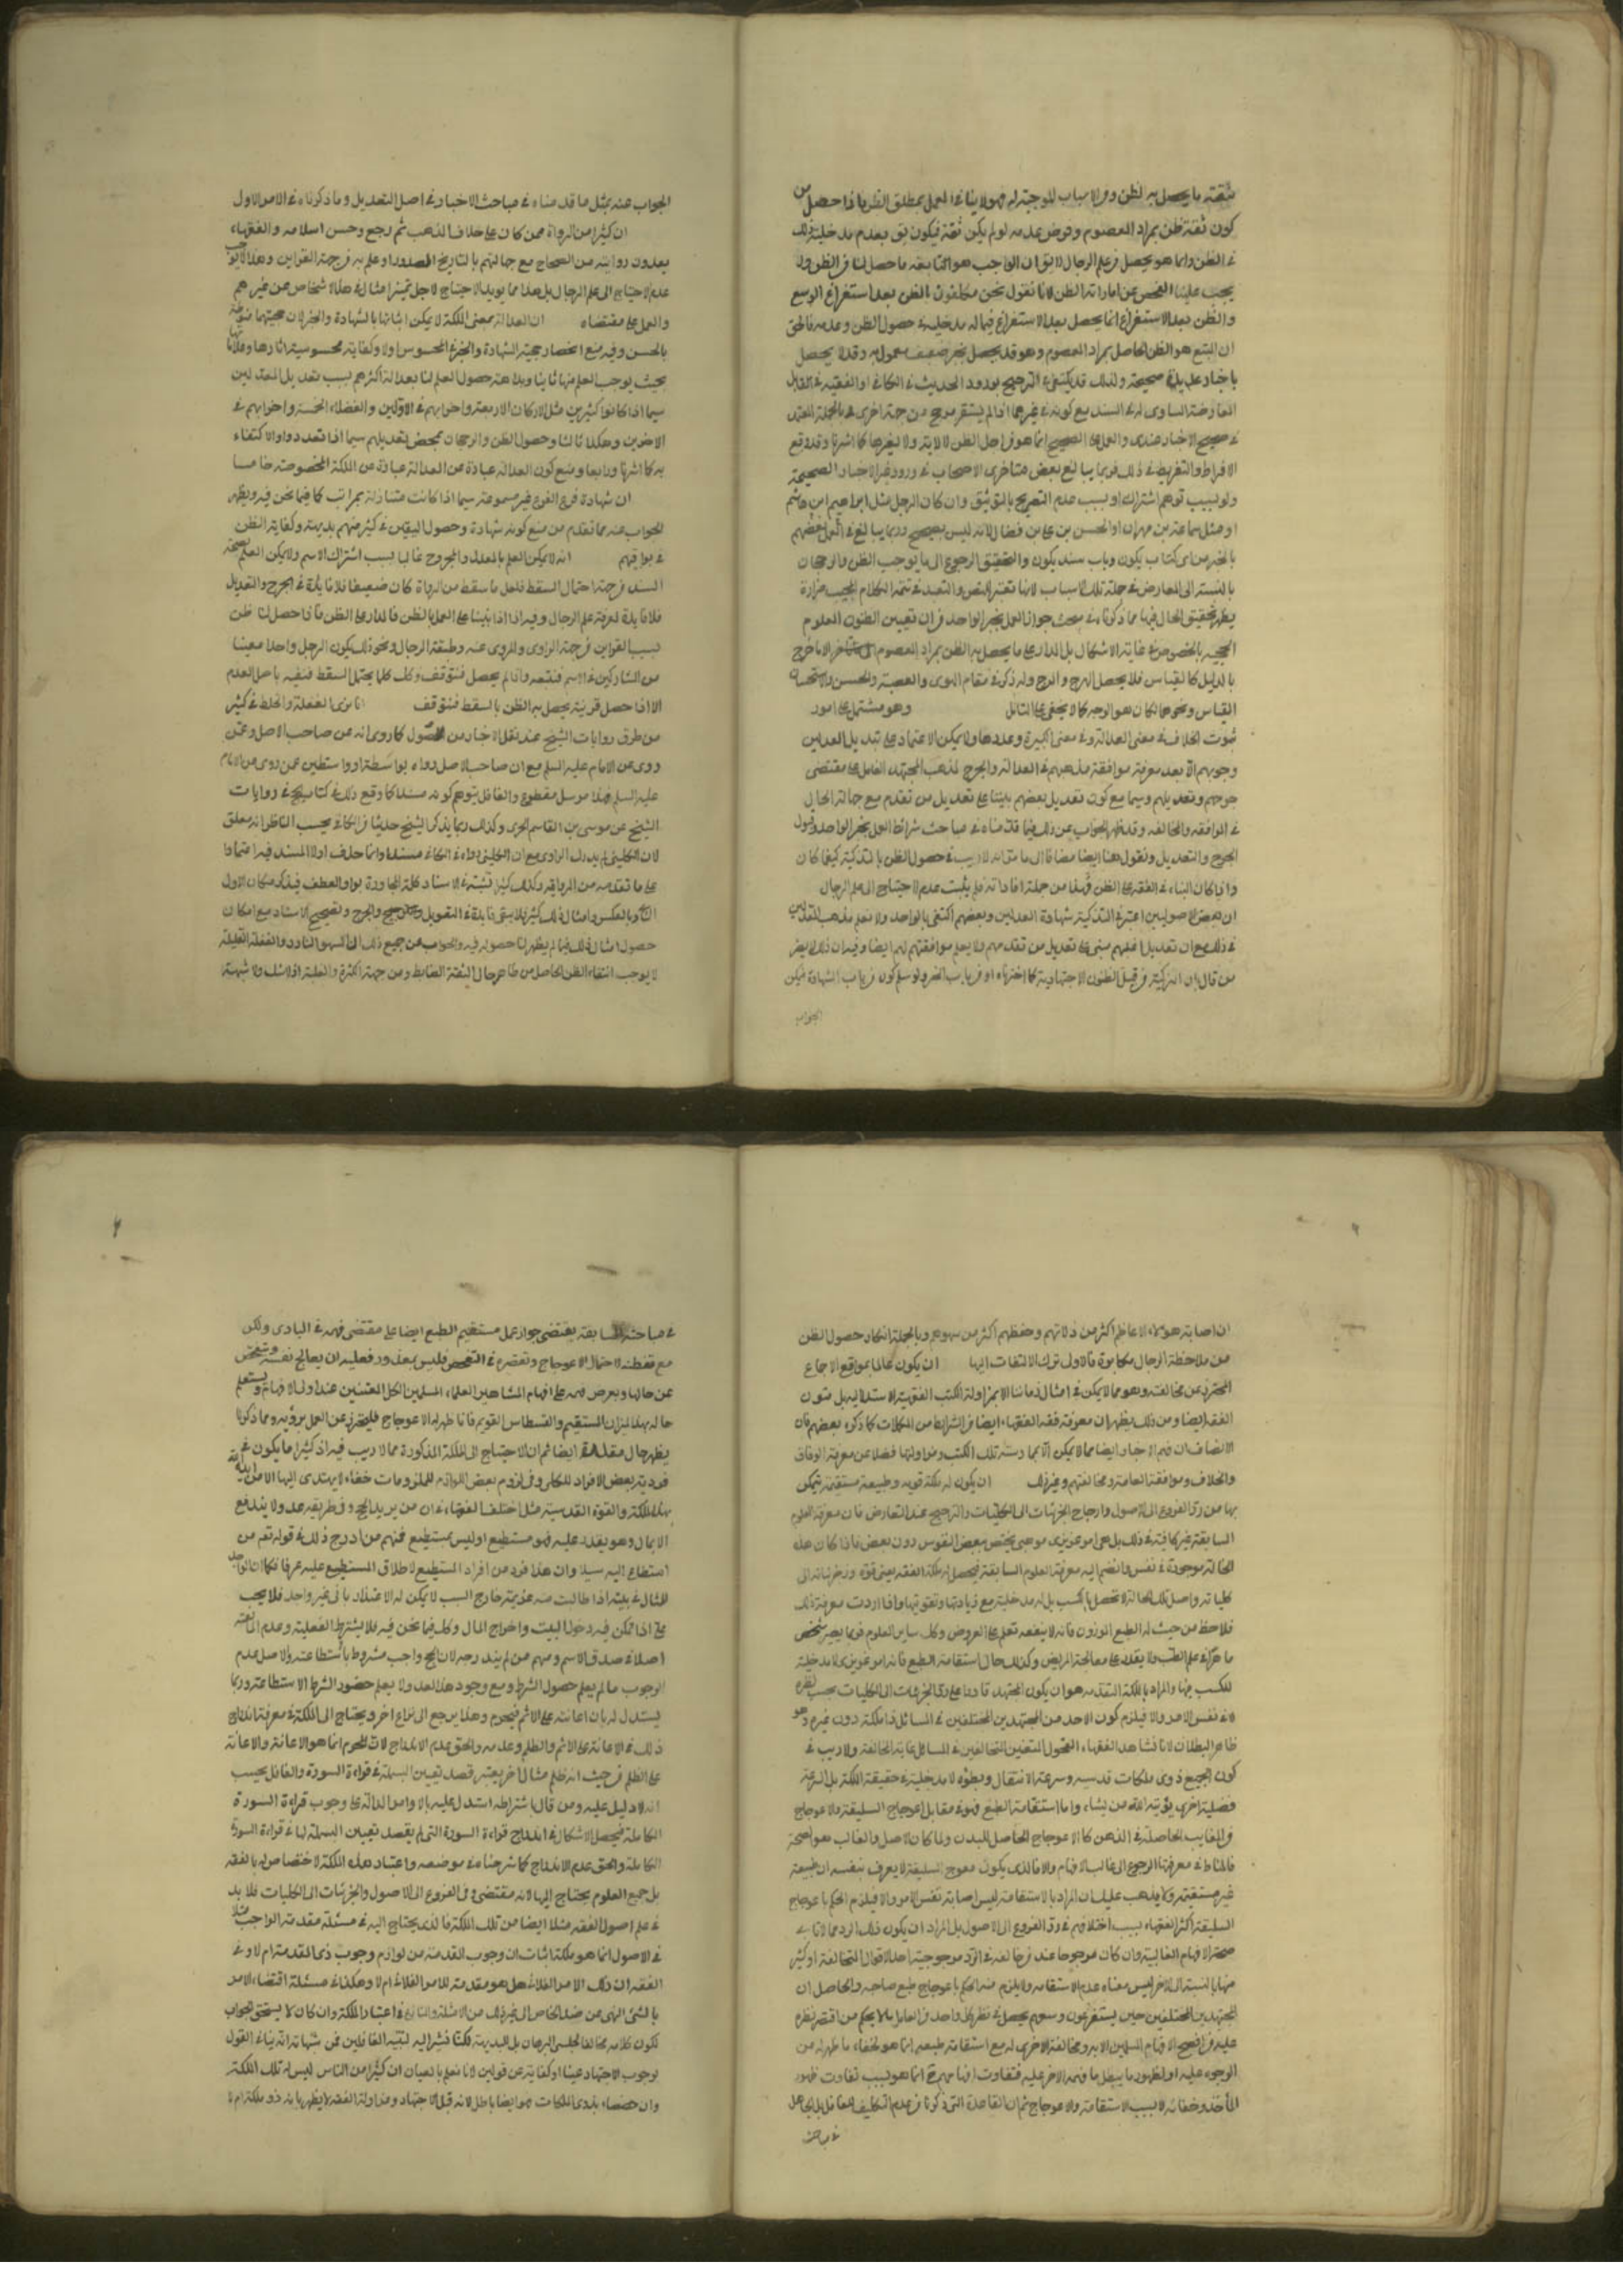 ثقته ما يحصل به الظن ومن الاسباب الموجبة له فهو لا ينافي العمل بمطلق الظن فاذا حصل من
كون ثقة ظن بمراد المعصوم وفرض عدمه لو لم يكن ثقة فيكون بعدم مدخلية ذلك
في الظن وانما هو يحصل من علم الرجال لا يق ان الواجب هو العمل بما حصل لنا من الظن ولا
يجب علينا الفحص عن امارات الظن لانا نقول نحن مكلفون بالظن بعد استفراغ الوسع
والظن بعد الاستفراغ انما يحصل بعد الاستفراغ فيما له مدخلية في حصول الظن وعدمه فالحق
ان المتبع هو الظن الحاصل بمراد المعصوم وهو قد يحصل بخبر ضعيف معمول به وقد لا يحصل
باخبار عديدة صحيحة ولذلك قد يكتفى في الترجيح بورود الحديث في الكافي او الفقيه في مقابل
المعارضة المساوي له في السند مع كونه في غيرهما اذا لم يستقر مرجح من جهة اخرى وبالجملة المعتبر
في صحيح الاخبار عندي والعمل على الصحيح انما هو من اجل الظن لا لاية ولا لغيرها كما اشرنا وقد وقع
الافراط والتفريط في ذلك فربما يبالغ بعض متاخري الاصحاب في ورود غير الاخبار الصحيحة
ولو بسبب توهم اشتراك او بسبب عدم التصريح بالتوثيق وان كان الرجل مثل ابراهيم ابن هاشم
او مثل سماعة بن مهران او الحسن بن علي بن فضال لانه ليس بصحيح وربما يبالغ في العمل بعضهم
بالخبر من اي كتاب يكون وباي سند يكون والتحقيق الرجوع الى ما يوجب الظن والرجحان
بالنسبة الى المعارض في جملة تلك الاسباب
يظهر تحقيق الحال فيها مما ذكرناه في مبحث جواز العمل بخبر الواحد من ان تعيين الظنون المعلوم
الحجية بالخصوص في غاية الاشكال بل المدار على ما يحصل به الظن بمراد المعصوم الا ما خرج
بالدليل كالقياس فلا يحصل الهرج والمرج ولو ذكر في مقام الهوى والعصبية والحسن والاستحسان
القياس ونحوها لكان هو الوجه كما لا يخفى على المتامل وهو مشتمل على امور
ثبوت الخلاف في معنى العدالة وفي معنى الكبيرة وعددها ولا يمكن الاعتماد على تعديل المعدلين
وجرحهم الا بعد معرفة موافقة مذهبهم في العدالة والجرح لمذهب المجتهد العامل على مقتضى
جرحهم وتعديلهم وسيما مع كون تعديل بعضهم مبتنيا على تعديل من تقدم مع جهالة الحال
في الموافقة والمخالفة وقد ظهر الجواب عن ذلك فيما قدمناه في مباحث شرائط العمل بخبر الواحد وقبول
الجرح والتعديل ونقول هنا ايضا مضافا الى ما سبق انه لا ريب في حصول الظن بالتزكية كيفما كان
واذا كان البناء في الفقه على الظن فهذا من جملة اماراته فلم يثبت عدم الاحتياج الى علم الرجال
ان بعض الاصوليين اعتبر في التزكية شهادة العدلين وبعضهم اكتفى بالواحد ولا نعلم مذهب المعدلين
في ذلك مع ان تعديل اغلبهم مبني على تعديل من تقدمهم ولا يعلم موافقتهم لهم ايضا وفيه ان ذلك لا يضر
من قال بان التزكية من قبيل الظنون الاجتهادية كما اخترناه او من باب الخبر ولو سلم كونه من باب الشهادة فيكون
الجواب
الجواب عنه بمثل ما قدمناه في مباحث الاخبار في اصل التعديل وما ذكرناه في الامر الاول
ان كثيرا من الرواة ممن كان على خلاف المذهب ثم رجع وحسن اسلامه والفقهاء
يعدون روايته من الصحاح مع جهالتهم بالتاريخ الصدور او علم به من جهة القراين وهذا لا يوجب
عدم الاحتياج الى علم الرجال بل هذا مما يؤيد الاحتياج لاجل تميز امثال هؤلاء الاشخاص عن غيرهم
والعمل على مقتضاه ان العدالة بمعنى الملكة لا يمكن اثباتها بالشهادة والخبر لان حجيتهما منوطة
بالحس وفيه منع انحصار حجية الشهادة والخبر في المحسوس اولا وكفاية محسوسية اثارها وعلاماتها
بحيث يوجب العلم بها ثانيا وبداهة حصول العلم لنا بعدالة اكثرهم بسبب تعديل المعدلين
سيما اذا كانوا كثيرين مثل الاركان الاربعة واخوانهم في الاولين والفضلاء الخمسة واخوانهم في
الاخرين وهكذا ثالثا وحصول الظن والرجحان بمحض تعديلهم سيما اذا تعددوا والاكتفاء
به كما اشرنا ورابعا ومنع كون العدالة عبارة عن العدالة عبارة عن الملكة المخصوصة خامسا
ان شهادة فرع الفرع غير مسموعة سيما اذا كانت متنازلة بمراتب كما فيما نحن فيه ويظهر
الجواب عنه مما تقدم من منع كونه شهادة وحصول اليقين في كثير منهم بديهة وكفاية الظن
في بواقيهم انه لا يمكن العلم بالمعدل والمجروح غالبا بسبب اشتراك الاسم ولا يمكن العلم بصحة
السند من جهة احتمال السقط فلعل ما سقط من الرواة كان ضعيفا فلا فايدة في الجرح والتعديل
فلا فايدة لمعرفة علم الرجال وفيه انا اذا بنينا على العمل بالظن فالمدار على الظن فاذا حصل لنا ظن
بسبب القراين من جهة الراوي والمروي عنه وطبقة الرجال ونحو ذلك يكون الرجل واحدا معينا
من المشاركين في الاسم فنتبعه واذا لم يحصل فنتوقف وكك كلما يحتمل السقط فننفيه باصل العدم
الا اذا حصل قرينة يحصل به الظن بالسقط فنتوقف انا نرى الغفلة والخلط في كثير
من طرق روايات الشيخ عند نقل الاخبار من الاصول كما روى انه عن صاحب الاصل وعمن
روى عن الامام عليه السلم مع ان صاحب الاصل رواه بواسطة او واسطتين عمن روى عن الامام
عليه السلم فهذا مرسل مقطوع والغافل يتوهم كونه مسندا كما وقع ذلك في كتاب الحج في روايات
الشيخ عن موسى بن القاسم البجلي وكذلك ربما يذكر الشيخ حديثا من الكافي يحسب الناظر انه معلق
لان الكليني لم يدرك الراوي مع ان الكليني رواه في الكافي مسندا وانما حذف اول السند فيه اعتمادا
على ما تقدمه من الرواية وكذلك كثيرا تشتبه في الاسناد كلمة المجاورة بواو العطف فيذكر مكان الاول
الثاني وبالعكس وامثال ذلك كثيرة فلا يبقى فايدة في التعويل والجرح وتصحيح الاسناد مع امكان
حصول امثال ذلك فيما لم يظهر لنا حصوله فيه والجواب عن جميع ذلك ان السهو النادر والغفلة القليلة
لا يوجب انتفاء الظن الحاصل من ظاهر حال الثقة الضابط ومن جهة الكثرة والغلبة اذ لا شك ولا شبهة
ان اصابة هؤلاء الاعاظم اكثر من زلاتهم وحفظهم اكثر من سهوهم وبالجملة انكار حصول الظن
من ملاحظة الرجال مكابرة فالاولى ترك الالتفات اليها ان يكون عالما بمواقع الاجماع
ليحترز عن مخالفته وهو مما لا يمكن في امثال زماننا الا بمزاولة الكتب الفقهية الاستدلالية بل متون
الفقه ايضا ومن ذلك يظهر ان معرفة فقه الفقهاء ايضا من الشرائط من المكملات كما ذكره بعضهم فان
الانصاف ان فهم الاخبار ايضا مما لا يمكن الا بممارسة تلك الكتب ومزاولتها فضلا عن معرفة الوفاق
والخلاف وموافقة العامة ومخالفتهم وغير ذلك ان يكون له ملكة قوية وطبيعة مستقيمة يتمكن
بها من رد الفروع الى الاصول وارجاع الجزئيات الى الكليات والترجيح عند التعارض فان معرفة العلوم
السابقة غير كافية في ذلك بل هي امر غريزي موهبي يختص ببعض النفوس دون بعض فاذا كان هذه
الحالة موجودة في نفس وانضم اليه معرفة العلوم السابقة فيحصل له ملكة الفقه يعني قوة رد جزئياته الى
كلياته واصل تلك الحالة لا تحصل بالكسب بل له مدخلية مع زيادتها وتقويتها واذا اردت معرفة ذلك
فلاحظ من حيث له الطبع الموزون فانه لا ينفعه تعلم علم العروض وكك ساير العلوم فربما يصير شخص
ماهرا في علم الطب ولا يقدر على معالجة المريض وكذلك حال استقامة الطبع فانه امر غريزي لا مدخلية
للكسب فيها والمراد بالملكة المتقدمة هو ان يكون المجتهد قادرا على رد الجزئيات الى الكليات بحسب نظره
لا في نفس الامر والا فيلزم كون الاحد من المجتهدين المختلفين في المسائل ذا ملكة دون غيره وهو
ظاهر البطلان لانا نشاهد الفقهاء الفحول المتقنين المتخالفين في المسائل غاية المخالفة ولا ريب في
كون الجميع ذوي ملكات قدسية وسرعة الانتقال وبطؤه لا مدخلية في حقيقة الملكة بل السرعة
فضيلة اخرى يؤتيه الله من يشاء واما استقامة الطبع فهو في مقابل اعوجاج السليقة والاعوجاج
من المعايب الحاصلة في الذهن كالاعوجاج الحاصل للبدن ولما كان الاصل والغالب هو الصحة
فالمناط في معرفتها الرجوع الى غالب الافهام والا فالذي يكون معوج السليقة لا يعرف بنفسه ان طبيعته
غير مستقيمة ولا يذهب عليك ان المراد بالاستقامة ليس اصابة نفس الامر والا فيلزم الحكم باعوجاج
السليقة اكثر الفقهاء بسبب اختلافهم في رد الفروع الى الاصول بل المراد ان يكون ذلك الرد مما لا تابى
صحة الافهام الغالبية وان كان مرجوحا عند من خالفه في الرد مرجوحية احد الاقوال المتخالفة او كثير
منها بالنسبة الى الاخر ليس معناه عدم الاستقامة ولا يلزم منه الحكم باعوجاج طبع صاحبه والحاصل ان
المجتهدين المختلفين حين يستفرغون وسعهم يحصل في نظر كل واحد من العامل ما لا يحكم من اقتصر نظره
عليه من افصح الافهام السليمة الا به ومخالفة الاخرى له مع استقامة طبيعته انما هو لخفاء ما ظهر له من
الوجوه عليه او لظهور ما يبطل ما فهمه الاخر عليه فتفاوت افهامهم انما هو بسبب تفاوت ظهور
المأخذ وخفائه لا بسبب الاستقامة والاعوجاج ثم ان القاعدة التي ذكرنا من عدم التكليف الغافل بل الجاهل
في مباحث
في مباحثه السابقة يقتضي جواز عمل مستقيم الطبع ايضا على مقتضى فهمه في البادي ولكن
مع تفطنه لاحتمال الاعوجاج وتقصيره في التفحص فليس بمعذور فعليه ان يعالج نفسه ويتفحص
عن حالها ويعرض فهمه على افهام المشاهير العلماء المسلمين الكل المعتنين عند اولى الافهام ويستعلم
حاله بهذا الميزان المستقيم والقسطاس القويم فاذا ظهر له الاعوجاج فليحترز عن العمل برؤيه ومما ذكرنا
يظهر حال مقلده ايضا ثم ان الاحتياج الى الملكة المذكورة مما لا ريب فيه اذ كثيرا ما يكون في معرفة
فردية بعض الافراد للكلي وفي لزوم بعض اللوازم للملزومات خفاء لا يهتدى اليها الا من ايده الله
بهذه الملكة والقوة القدسية مثل اختلف الفقهاء في ان من يريد الحج وفي طريقه عدو لا يندفع
الا بمال وهو يقدر عليه فهو مستطيع او ليس بمستطيع فمنهم من ادرج ذلك في قوله تع من
استطاع اليه سبيلا وان هذا فرد من افراد المستطيع لاطلاق المستطيع عليه عرفا فكما ان الواجد
للمال في بيته اذا طالبت منه غريمة خارج البيت لا يمكن له الاعتذار باني غير واجد فلا يجب
علي اذا تمكن فيه دخول البيت واخراج المال وكك فيما نحن فيه فلا يشترط الفعلية وعدم المانعة
اصلا في صدق الاسم ومنهم من لم يندرجه لان الحج واجب مشروط بالاستطاعة والاصل عدم
الوجوب ما لم يعلم حصول الشرط ومع وجود هذا العدو لا يعلم حضور الشرط الاستطاعة وربما
يستدل له بان اعانته على الاثم فيحرم وهذا يرجع الى نزاع اخر ويحتاج الى الملكة في معرفة اندراج
ذلك في الاعانة على الاثم والظلم وعدمه والحق عدم الاندراج لان المحرم انما هو الاعانة والاعانة
على الظلم من حيث انه ظلم مثال اخر يعتبر قصد تعيين البسملة في قراءة السورة والغافل يحسب
انه لا دليل عليه ومن قال باشتراطه استدل عليه بالاوامر الدالة على وجوب قراءة السورة
الكاملة فيحصل الاشكال في اندراج قراءة السورة التي لم يقصد تعيين البسملة لها في قراءة السورة
الكاملة والحق عدم الاندراج كما شرحنا في موضعه واعتبار هذه الملكة لا اختصاص له بالفقه
بل جميع العلوم يحتاج اليها لانه مقتضى رد الفروع الى الاصول والجزئيات الى الكليات فلا بد
في علم اصول الفقه مثلا ايضا من تلك الملكة فالذي يحتاج اليه في مسئلة مقدمة الواجب مثلا
في الاصول انما هو ملكة اثبات ان وجوب المقدمة من لوازم وجوب ذي المقدمة ام لا وفي
الفقه ان ذلك الامر الفلاني هل هو مقدمة للامر الفلاني ام لا وهكذا في مسئلة اقتضاء الامر
بالشئ النهي عن ضده الخاص الى غير ذلك من الامثلة والنزاع في اعتبار الملكة وان كان لا يستحق الجواب
لكون كلامه مخالفا لجلي البرهان بل البديهة لكنا نشير اليه لتنبيه الغافلين فمن شبهاته انه بناء على القول
بوجوب الاجتهاد عينا او كفاية عن قولين لانا نعلم بالعيان ان كثيرا من الناس ليس له تلك الملكة
وان خصصناه بذوي الملكات فهو ايضا باطل لانه قبل الاجتهاد ومزاولة الفقه لا يظهر بانه ذو ملكة ام لا